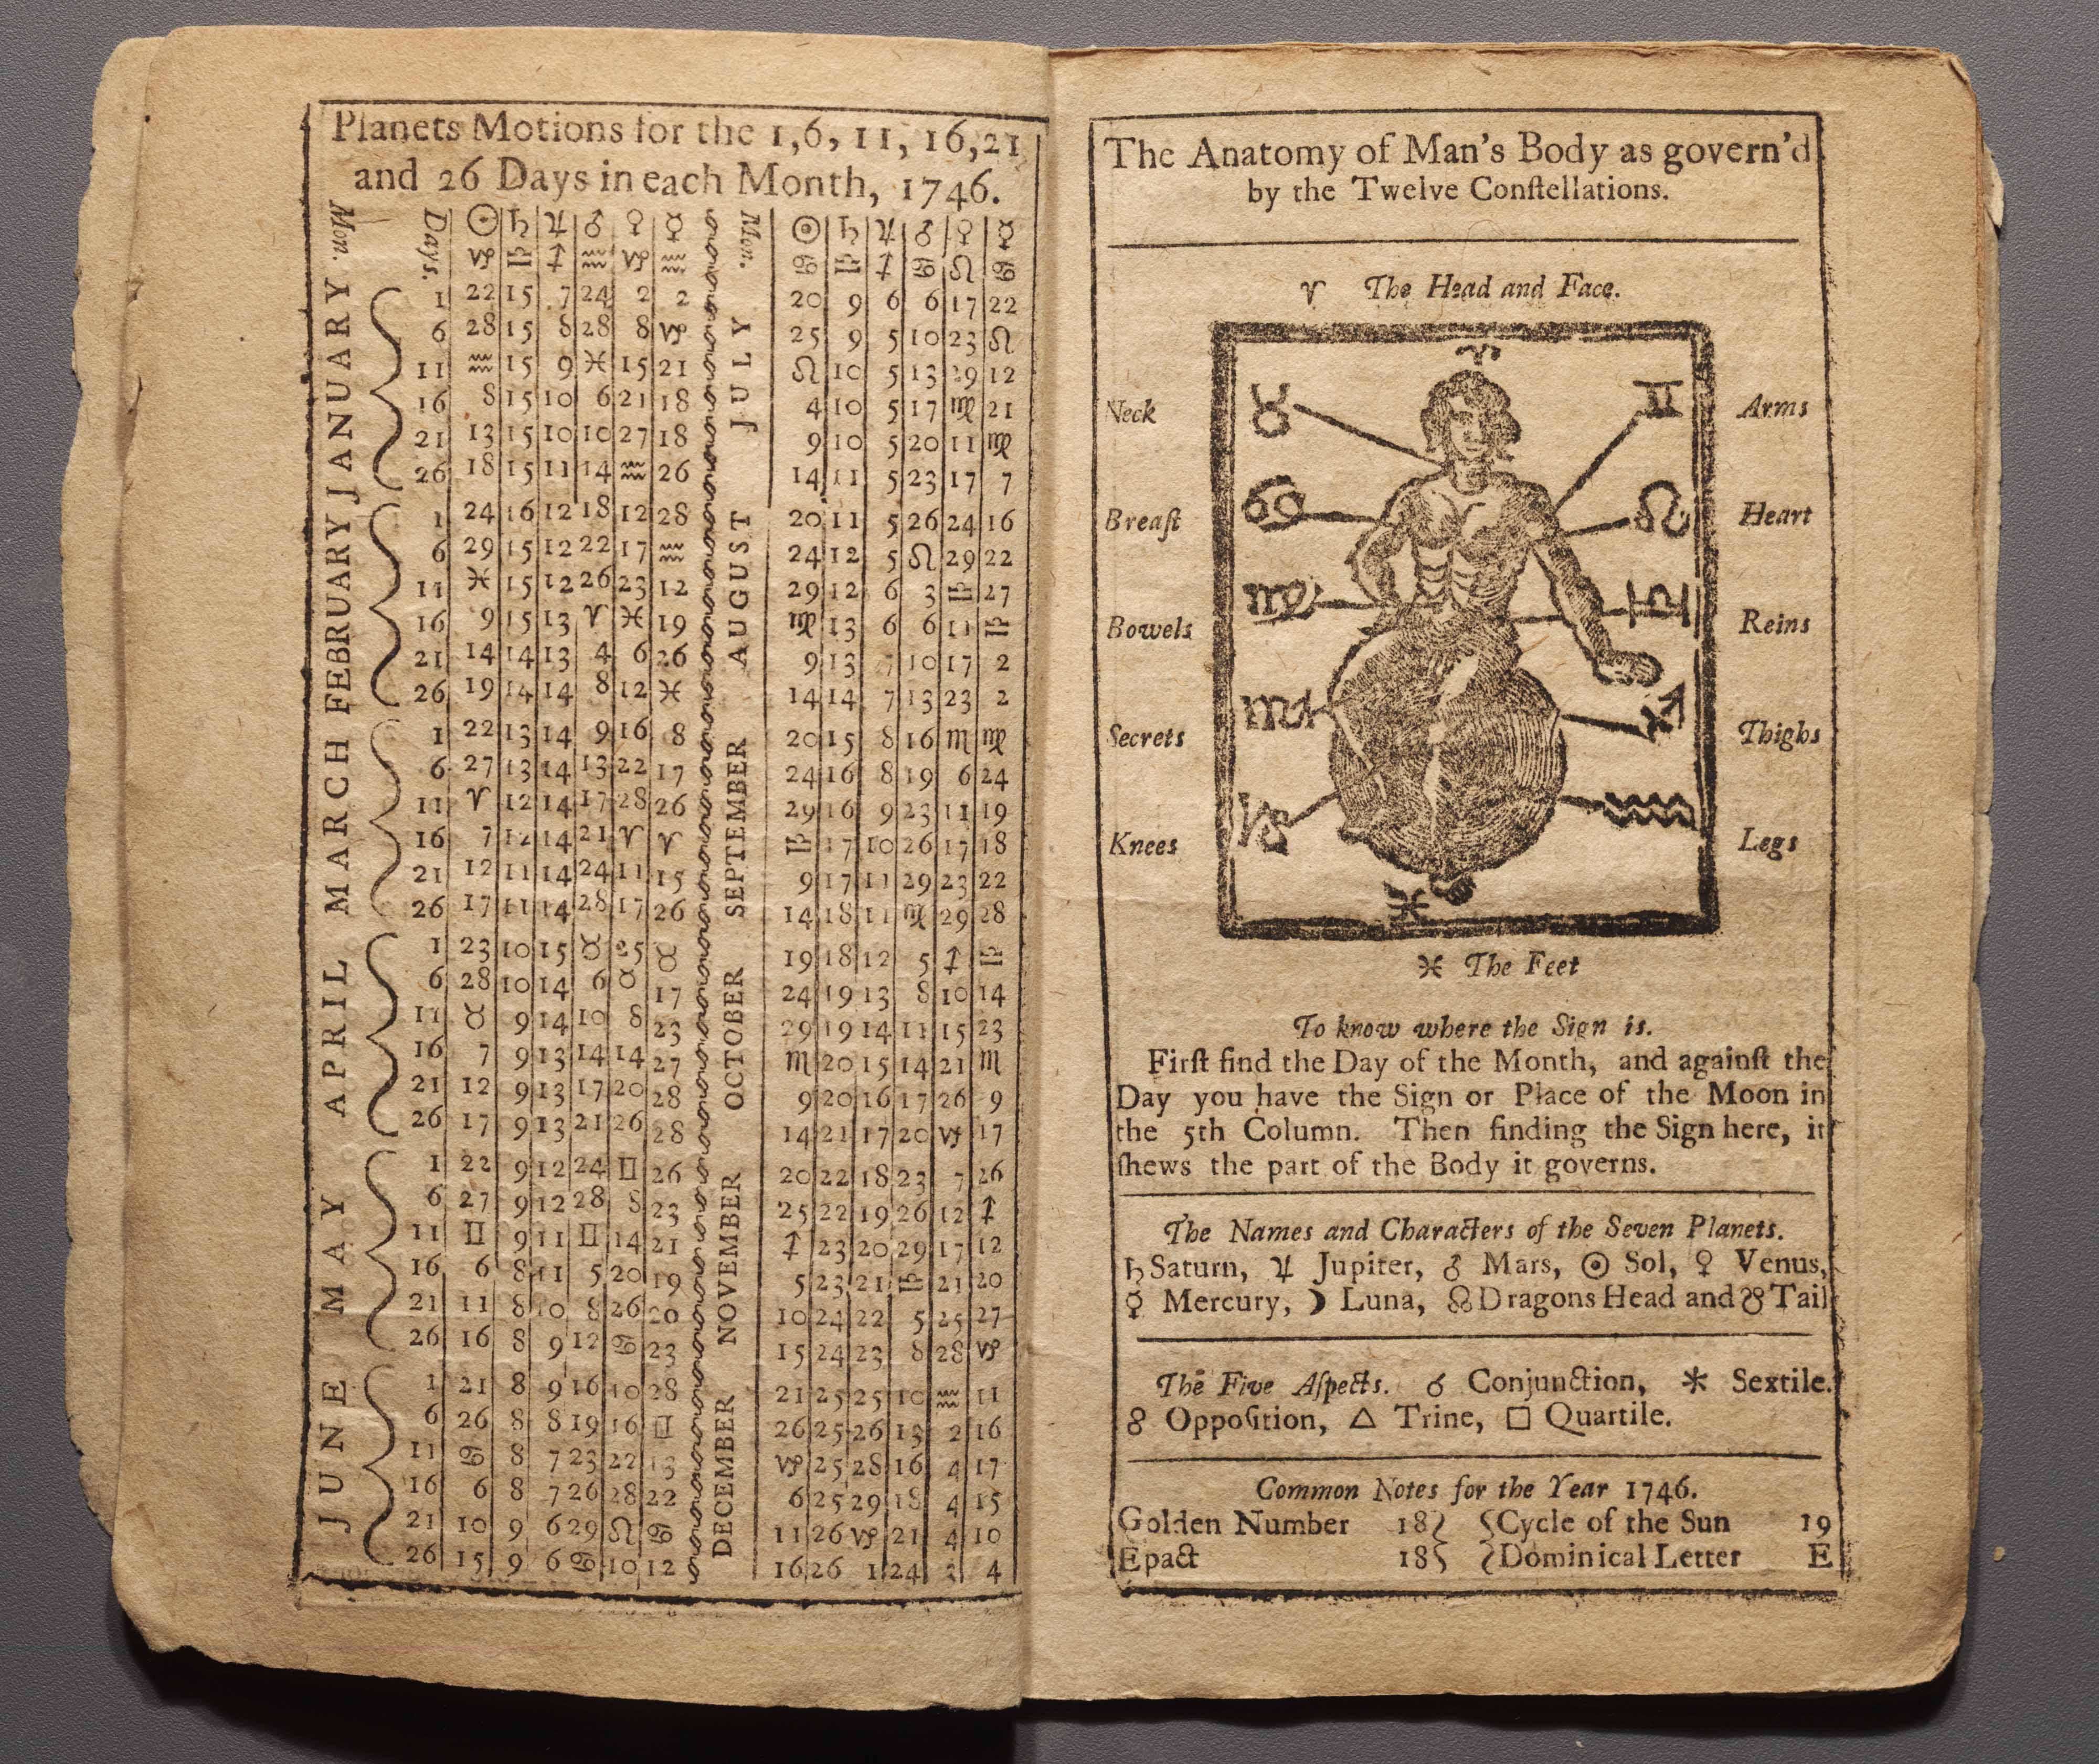 Planets Motions for the 1,6, 11, 16,21
and 26 Days in each Month, 1746.
Mon. Days. ☉ ♄ ♃ ♂ ♀ ☿ Mon. ☉ ♄ ♃ ♂ ♀ ☿
♑ ♎ ♐ ♒ ♑ ♒ ♋ ♎ ♐ ♋ ♌ ♋
JANUARY JULY
1 22 15 7 24 2 2 20 9 6 6 17 22
6 28 15 8 28 8 ♑ 25 9 5 10 23 ♌
11 ♒ 15 9 ♓ 15 21 ♌ 10 5 13 29 12
16 8 15 10 6 21 18 4 10 5 17 ♍ 21
21 13 15 10 10 27 18 9 10 5 20 11 ♍
26 18 15 11 14 ♒ 26 14 11 5 23 17 7
FEBRUARY AUGUST
1 24 16 12 18 12 28 20 11 5 26 24 16
6 29 15 12 22 17 ♒ 24 12 5 ♌ 29 22
11 ♓ 15 12 26 23 12 29 12 6 3 ♎ 27
16 9 15 13 ♈ ♓ 19 ♍ 13 6 6 11 ♎
21 14 14 13 4 6 26 9 13 7 10 17 2
26 19 14 14 8 12 ♓ 14 14 7 13 23 2
MARCH SEPTEMBER
1 22 13 14 9 16 8 20 15 8 16 ♏ ♍
6 27 13 14 13 22 17 24 16 8 19 6 24
11 ♈ 12 14 17 28 26 29 16 9 23 11 19
16 7 12 14 21 ♈ ♈ ♎ 17 10 26 17 18
21 12 11 14 24 11 15 9 17 11 29 23 22
26 17 11 14 28 17 26 14 18 11 ♍ 29 28
APRIL OCTOBER
1 23 10 15 ♉ 25 ♉ 19 18 12 5 ♐ ♎
6 28 10 14 6 ♉ 17 24 19 13 8 10 14
11 ♉ 9 14 10 8 23 29 19 14 11 15 23
16 7 9 13 14 14 27 ♏ 20 15 14 21 ♏
21 12 9 13 17 20 28 9 20 16 17 26 9
26 17 9 13 21 26 28 14 21 17 20 ♑ 17
MAY NOVEMBER
1 22 9 12 24 ♊ 26 20 22 18 23 7 26
6 27 9 12 28 8 23 25 22 19 26 12 ♐
11 ♊ 9 11 ♊ 14 21 ♐ 23 20 29 17 12
16 6 8 11 5 20 19 5 23 21 ♎ 21 20
21 11 8 10 8 26 20 10 24 22 5 25 27
26 16 8 9 12 ♋ 23 15 24 23 8 28 ♑
JUNE DECEMBER
1 21 8 9 16 10 28 21 25 25 10 ♒ 11
6 26 8 8 19 16 ♊ 26 25 26 13 2 16
11 ♋ 8 7 23 22 13 ♑ 25 28 16 4 17
16 6 8 7 26 28 22 6 25 29 18 4 15
21 10 9 6 29 ♌ ♋ 11 26 ♑ 21 4 10
26 15 9 6 ♋ 10 12 16 26 1 24 4
The Anatomy of Man's Body as govern'd
by the Twelve Conſtellations.
♈ The Head and Face.
♈
Neck ♉ ♊ Arms
Breaſt ♋ ♌ Heart
Bowels ♍ ♎ Reins
Secrets ♏ ♐ Thighs
Knees ♑ ♒ Legs
♓
♓ The Feet
To know where the Sign is.
Firſt find the Day of the Month, and againſt the
Day you have the Sign or Place of the Moon in
the 5th Column. Then finding the Sign here, it
ſhews the part of the Body it governs.
The Names and Characters of the Seven Planets.
♄ Saturn, ♃ Jupiter, ♂ Mars, ☉ Sol, ♀ Venus,
☿ Mercury, ☽ Luna, ☊ Dragons Head and ☋ Tail
The Five Aſpects. ☌ Conjunction, ⚹ Sextile.
☍ Oppoſition, △ Trine, □ Quartile.
Common Notes for the Year 1746.
Golden Number 18 Cycle of the Sun 19
Epact 18 Dominical Letter E